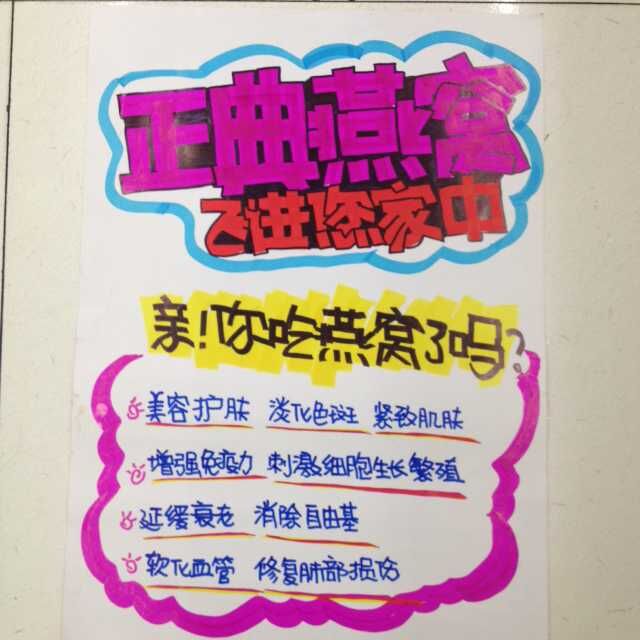 正典燕窝
飞进您家中
亲!你吃燕窝了吗?
美容护肤 淡化色斑 紧致肌肤
增强免疫力 刺激细胞生长繁殖
延缓衰老 消除自由基
软化血管 修复肺部损伤